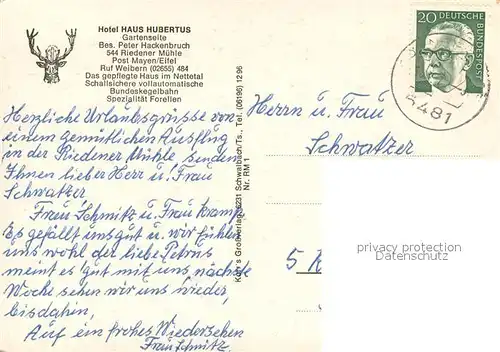 Hotel HAUS HUBERTUS
Gartenseite
Bes. Peter Hackenbruch
544 Riedener Mühle
Post Mayen/Eifel
Ruf Weibern (02655) 484
Das gepflegte Haus im Nettetal
Schallsichere vollautomatische
Bundeskegelbahn
Spezialität Forellen
Herzliche Urlaubsgrüsse von
einem gemütlichen Ausflug
in der Riedener Mühle senden
Ihnen lieber Herr u. Frau
Schwatzer
Frau Schmitz u. Frau Kramp
Es gefällt uns gut u. wir fühlen
uns wohl der liebe Petrus
meint es gut mit uns, nächste
Woche sehen wir uns wieder,
bisdahin,
Auf ein frohes Wiedersehen
Frau Schmitz.
Großverlag, 6231 Schwalbach/Ts., Tel. (06196) 12 96
Nr. RM 1
20 DEUTSCHE BUNDESPOST
5481
Herrn u. Frau
Schwatzer
5 K
privacy protection
Datenschutz